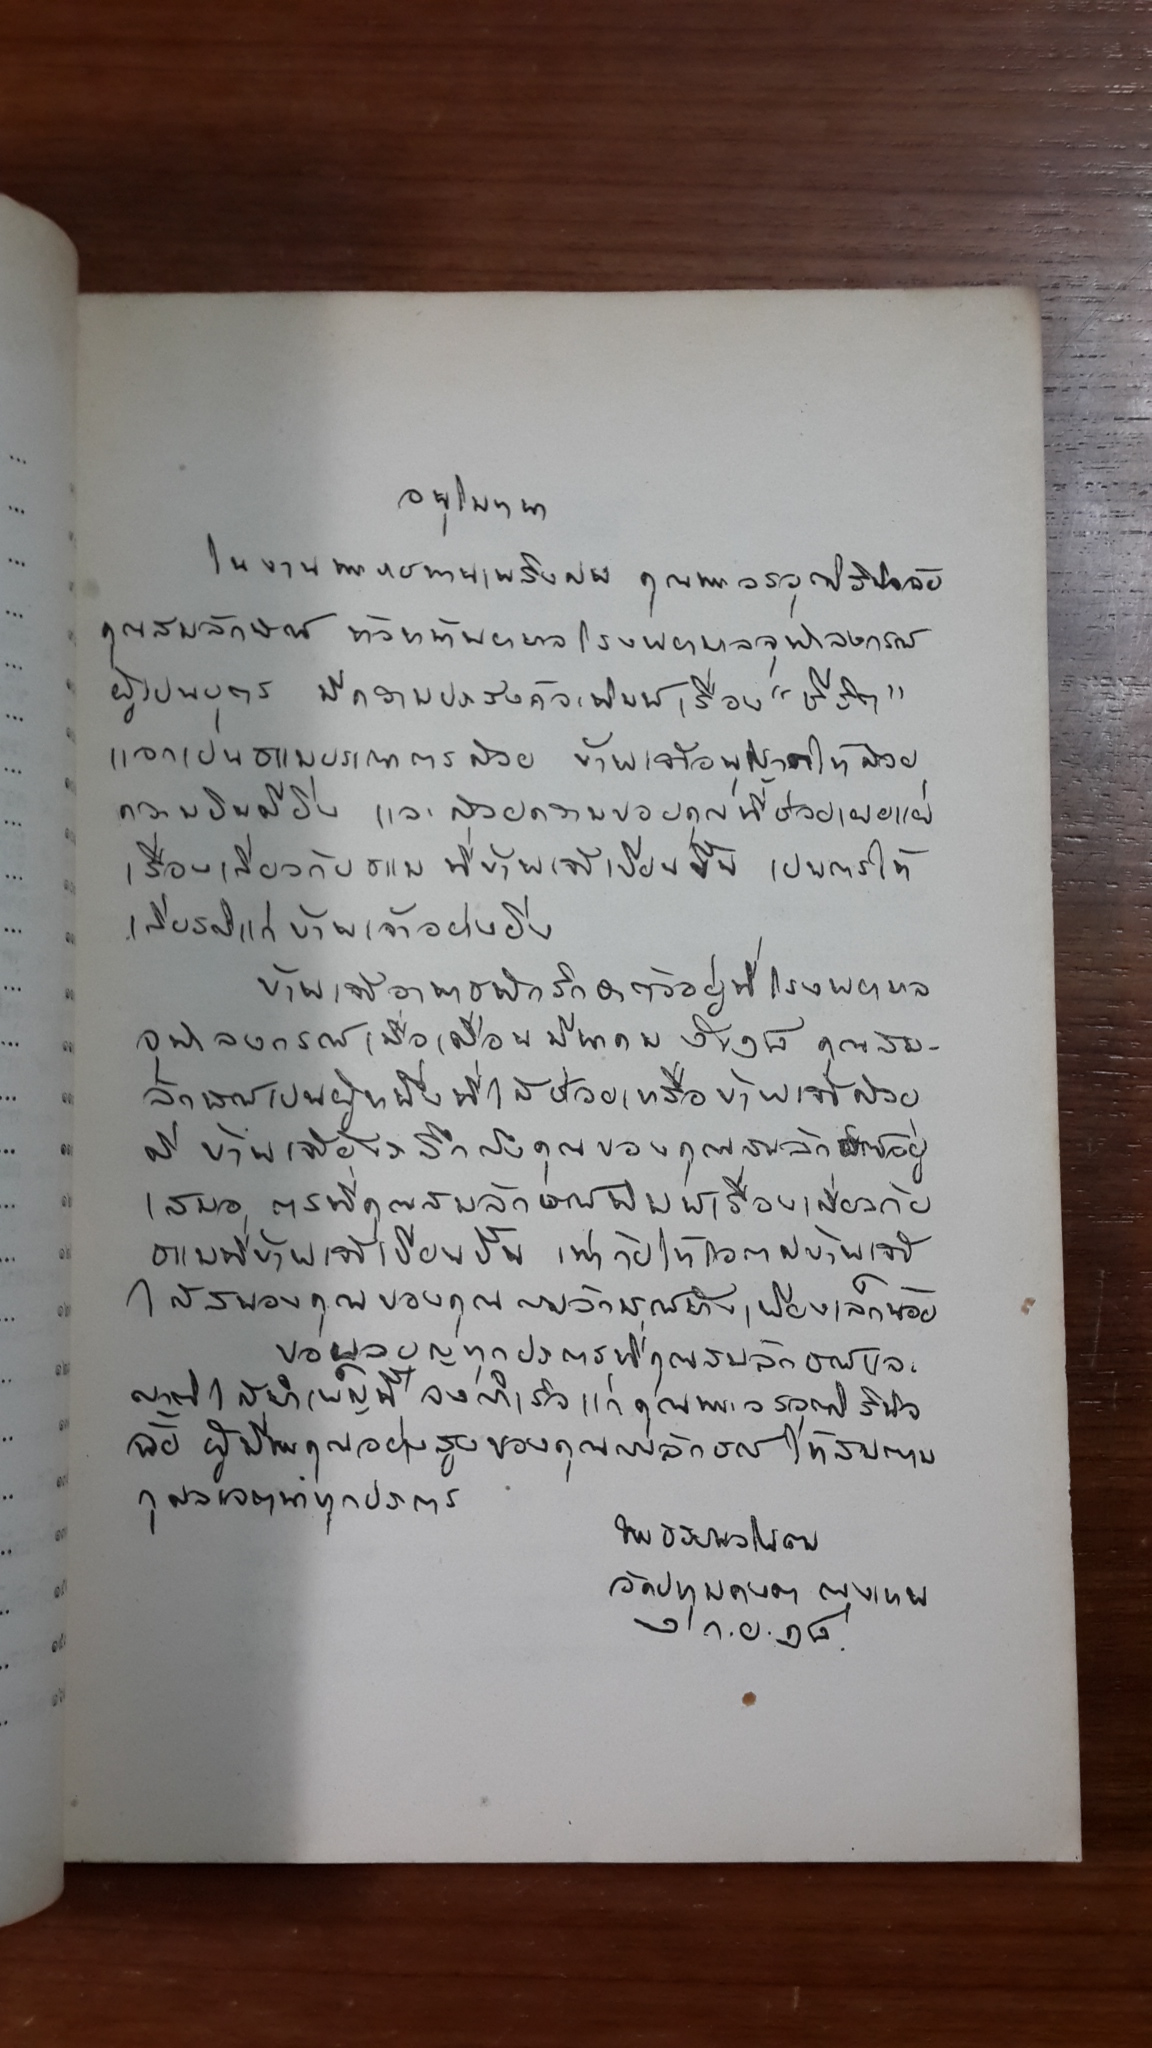 อนุโมทนา
ในงานพระราชทานเพลิงศพ คุณพระวรวุฒิวินิจฉัย
คุณสมลักษณ์ หัวหน้าพยาบาลโรงพยาบาลจุฬาลงกรณ์
ผู้เป็นบุตร มีความประสงค์จะพิมพ์เรื่อง "ชีวิต"
แจกเป็นธรรมบรรณาการด้วย ข้าพเจ้าอนุญาตให้ด้วย
ความยินดียิ่ง และด้วยความขอบคุณที่ช่วยเผยแผ่
เรื่องเกี่ยวกับธรรม ที่ข้าพเจ้าเขียนขึ้น เป็นการให้
เกียรติแก่ข้าพเจ้าอย่างยิ่ง
ข้าพเจ้าอาพาธพักรักษาตัวอยู่ที่โรงพยาบาล
จุฬาลงกรณ์เมื่อเดือนมีนาคม คุณสม-
ลักษณ์เป็นผู้หนึ่งที่ได้ช่วยเหลือข้าพเจ้าด้วย
ดี ข้าพเจ้ายังระลึกถึงคุณของคุณสมลักษณ์อยู่
เสมอ การที่คุณสมลักษณ์พิมพ์เรื่องเกี่ยวกับ
ธรรมที่ข้าพเจ้าเขียนขึ้น เท่ากับให้โอกาสข้าพเจ้า
ได้สนองคุณของคุณสมลักษณ์บ้างเพียงเล็กน้อย
ขอผลบุญทุกประการที่คุณสมลักษณ์และ
ญาติได้บำเพ็ญนี้ จงสำเร็จแก่คุณพระวรวุฒิวินิจ
ฉัย ผู้มีพระคุณอย่างสูงของคุณสมลักษณ์ ให้สมตาม
กุศลเจตนาทุกประการ
วัดปทุมคงคา กรุงเทพ
ก.ย. ๑๘